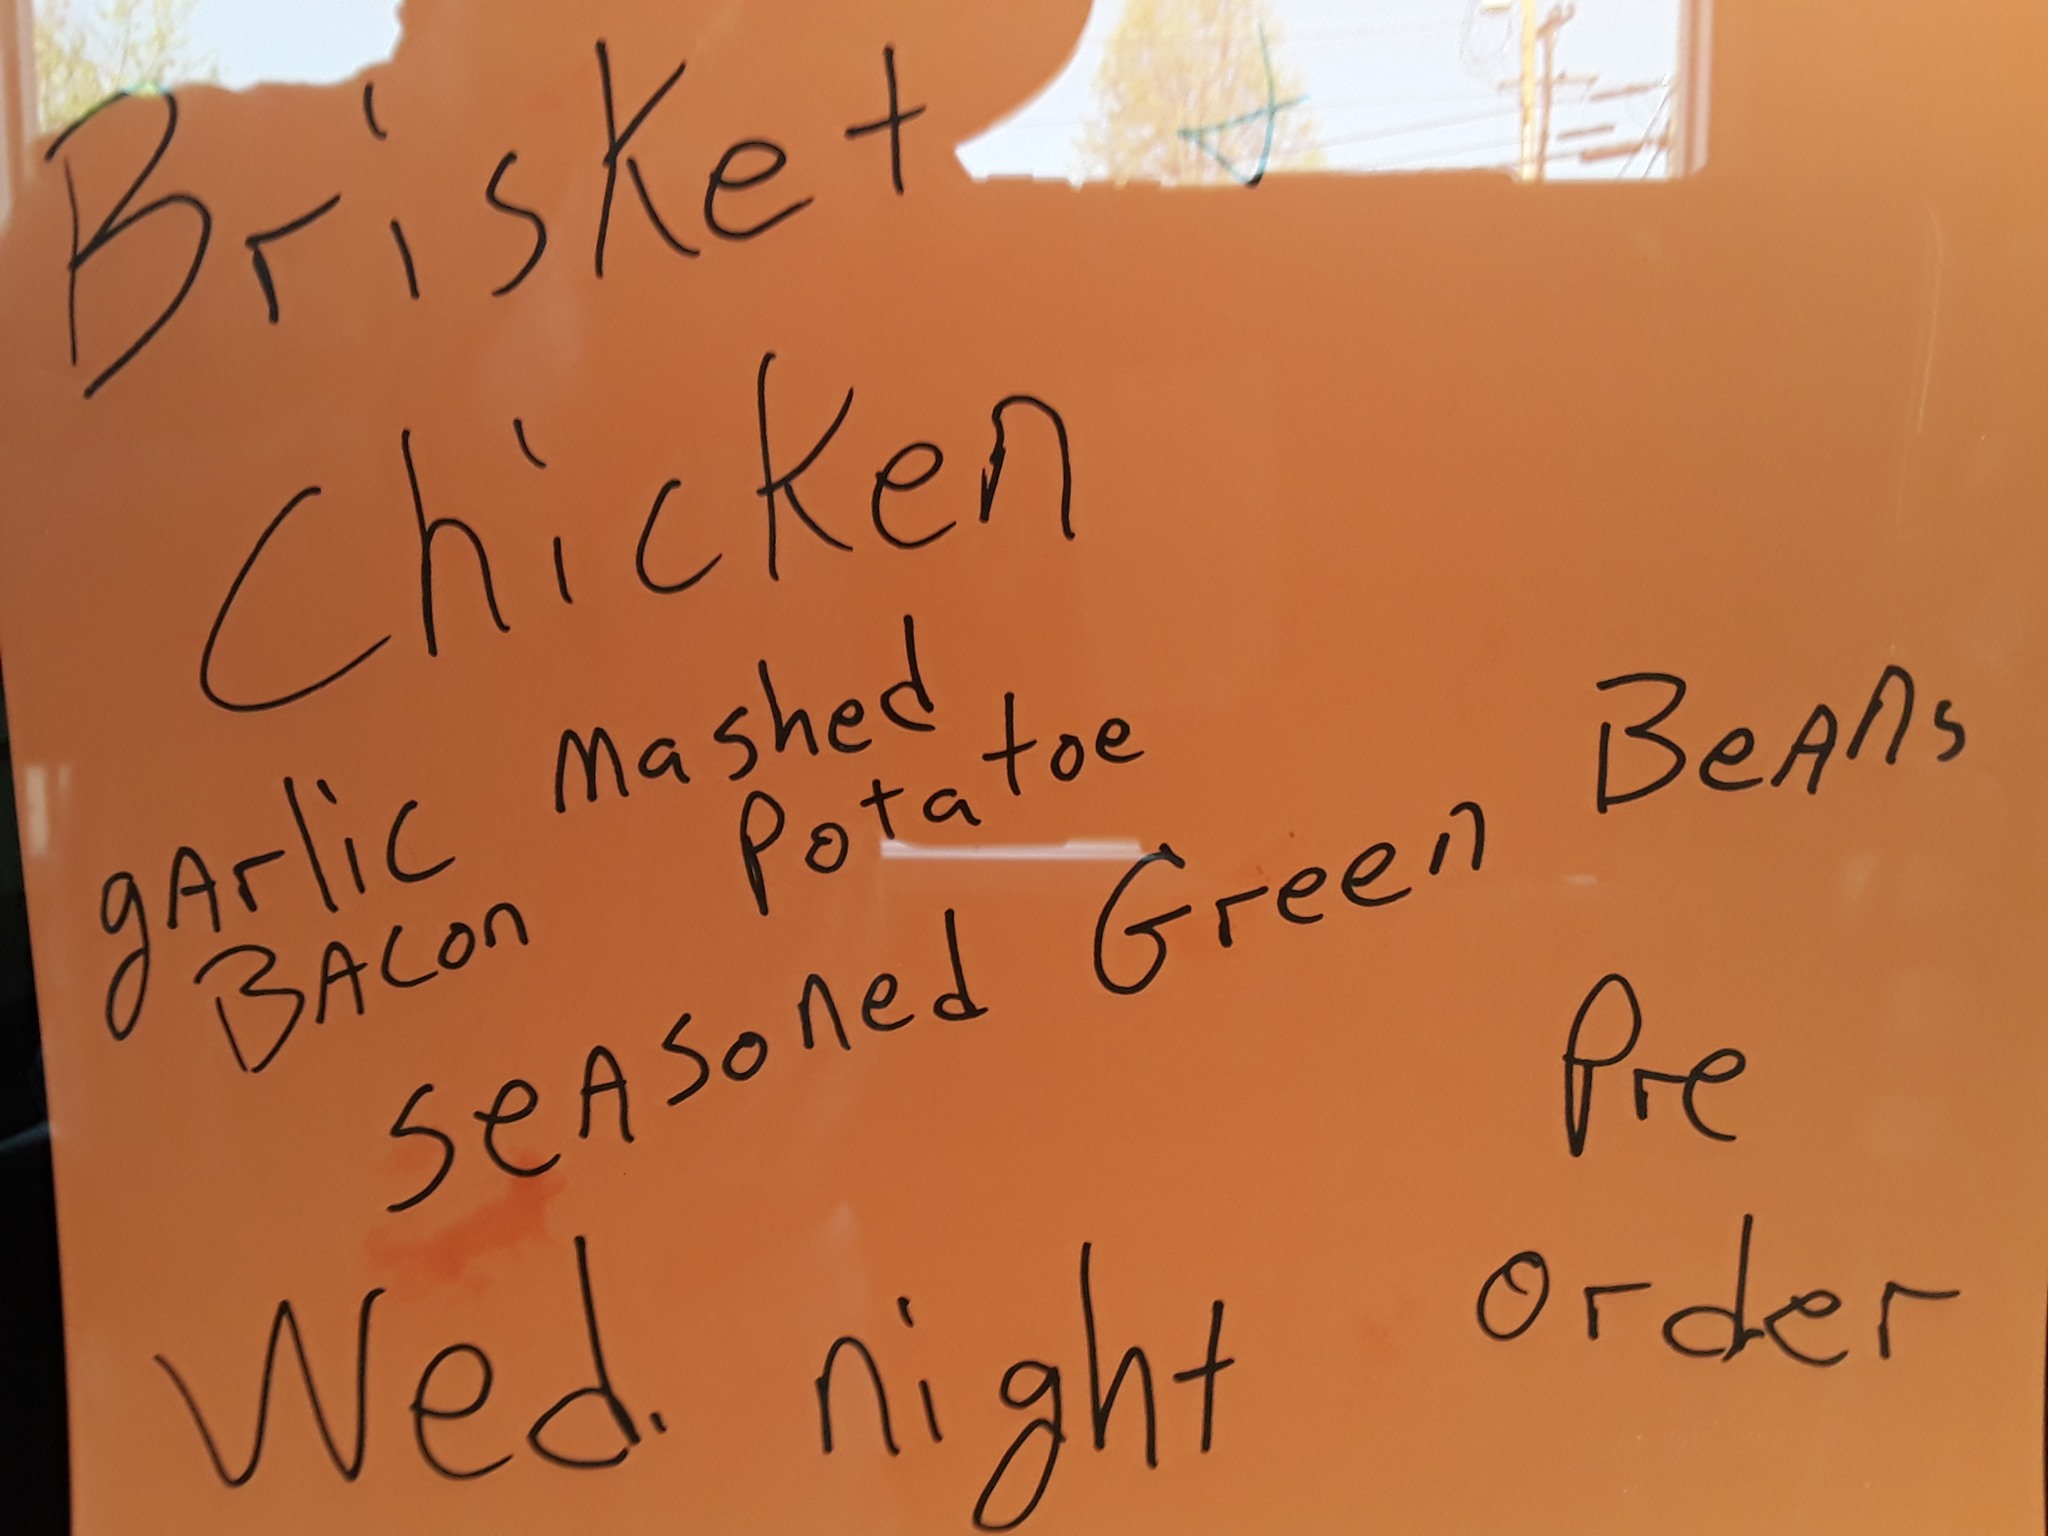 Brisket
Chicken
gArlic mashed potatoe
BAcon seAsoned Green BeAns
Pre
order
Wed. night